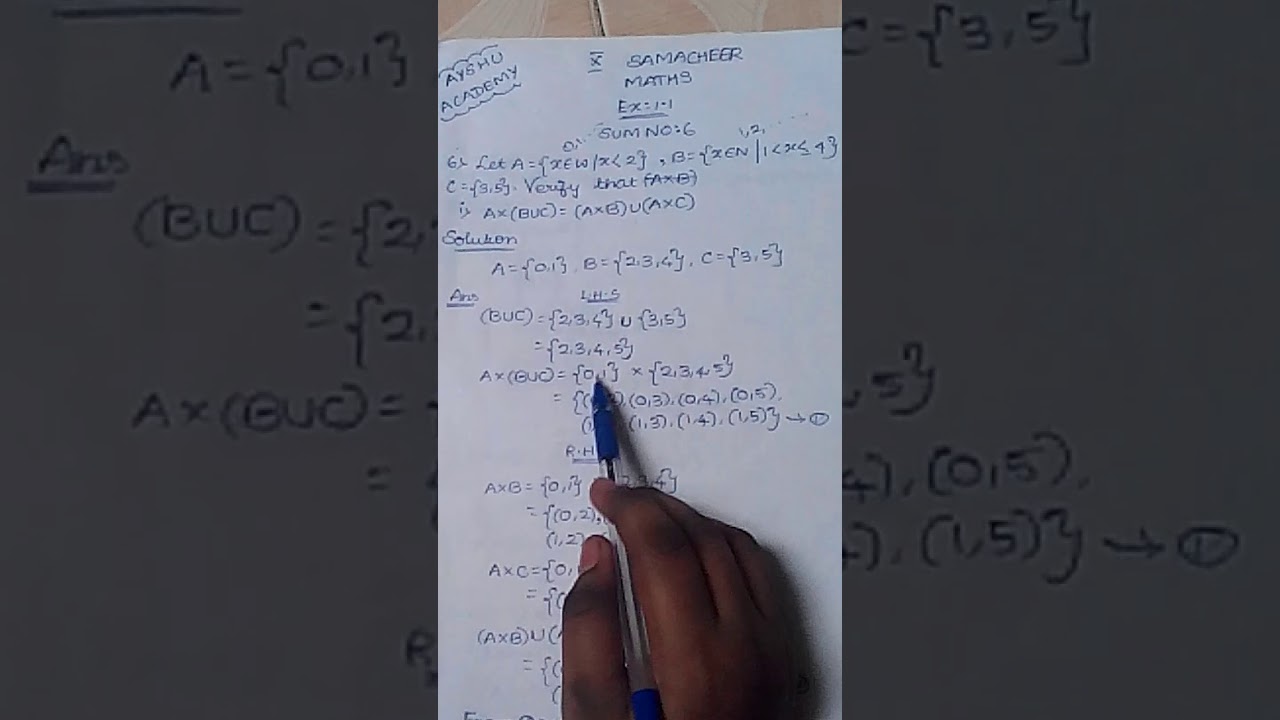 AYSHU
ACADEMY
X SAMACHEER
MATHS
Ex:1.1
SUM NO:6
1,2,
6) Let A={x∈W/x<2}, B={x∈N|1<x≤4}
C={3,5}. Verify that (A×B)
i) A×(BUC)=(A×B)U(A×C)
Solution
A={0,1}, B={2,3,4}, C={3,5}
Ans L.H.S
(BUC)={2,3,4} U {3,5}
={2,3,4,5}
A×(BUC)={0,1} × {2,3,4,5}
={( ),(0,3),(0,4),(0,5),
(1, (1,3),(1,4),(1,5)} → ①
R.H
A×B={0,1} 2,3,4}
={(0,2),
(1,2)
A×C={0,
={(
(A×B)U(
={(
(